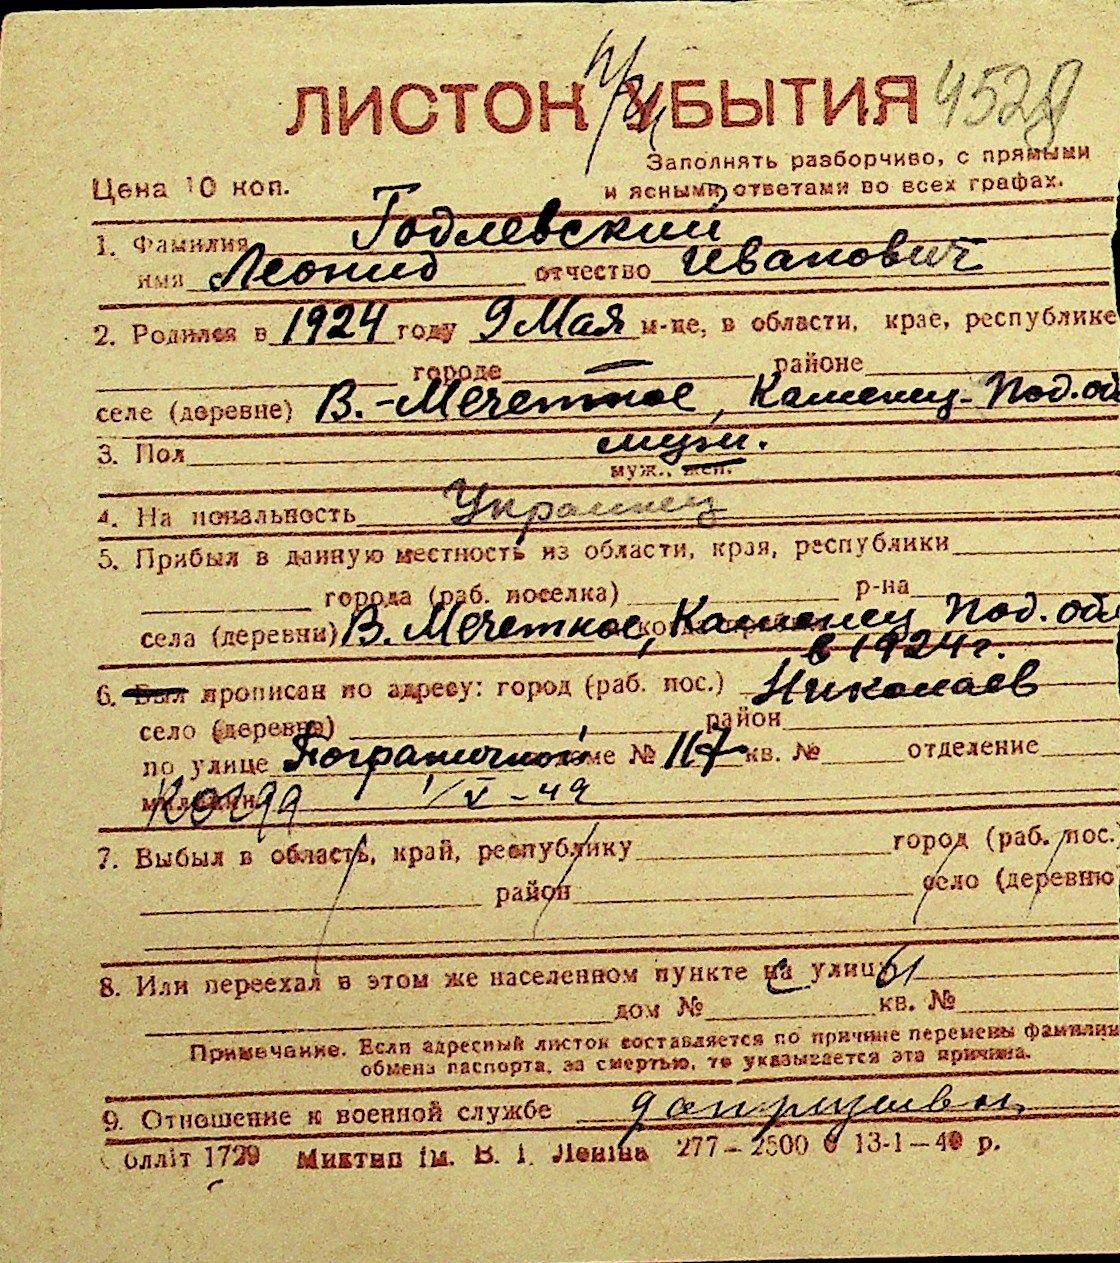 ЛИСТОК УБЫТИЯ
Заполнять разборчиво, с прямыми
Цена 10 коп. и ясными ответами во всех графах.
1. Фамилия Годлевский
имя Леонид отчество Иванович
2. Родился в 1924 году 9 Мая м-це, в области, крае, республике
городе районе
селе (деревне) В.-Мечетное, Каменец-Под. об
3. Пол муж.
муж., жен.
4. Национальность Украинец
5. Прибыл в данную местность из области, края, республики
города (раб. поселка) р-на
села (деревни) В. Мечетное, Каменец Под. об
в 1924 г.
6. Был прописан по адресу: город (раб. пос.) Николаев
село (деревня) район
по улице Пограничной доме № 117 кв. № отделение
милиции когда 1/V-49
7. Выбыл в область, край, республику город (раб. пос.)
район село (деревню
8. Или переехал в этом же населенном пункте на улицу
дом № кв. №
Примечание. Если адресный листок составляется по причине перемены фамилии
обмена паспорта, за смертью, то указывается эта причина.
9. Отношение к военной службе допризывн
облліт 1729 Миктип ім. В. І. Леніна 277–2500 б 13-1–49 р.